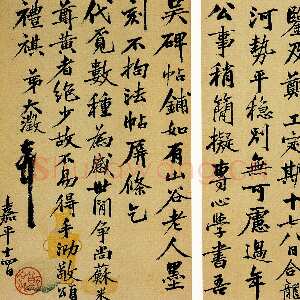 鑒及鄭工定期十七八日合龍
河勢平穩別無可慮過年
公事稍簡擬專心學書吾
吳碑帖鋪如有山谷老人墨
刻不拘法帖屏條乞
代覓數種為感世間爭尚蘇米
尊黃者絕少故不易得手泐敬頌
禮祺 弟大澂
嘉平十四日